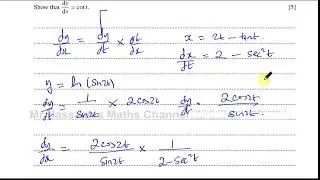 Show that dy/dx = cot t. [5]
dy/dx = dy/dt × dt/dx
x = 2t - tan t
dx/dt = 2 - sec²t
y = ln(sin2t)
dy/dt = 1/sin2t × 2cos2t
dy/dt = 2cos2t/sin2t
dy/dx = 2cos2t/sin2t × 1/2-sec²t